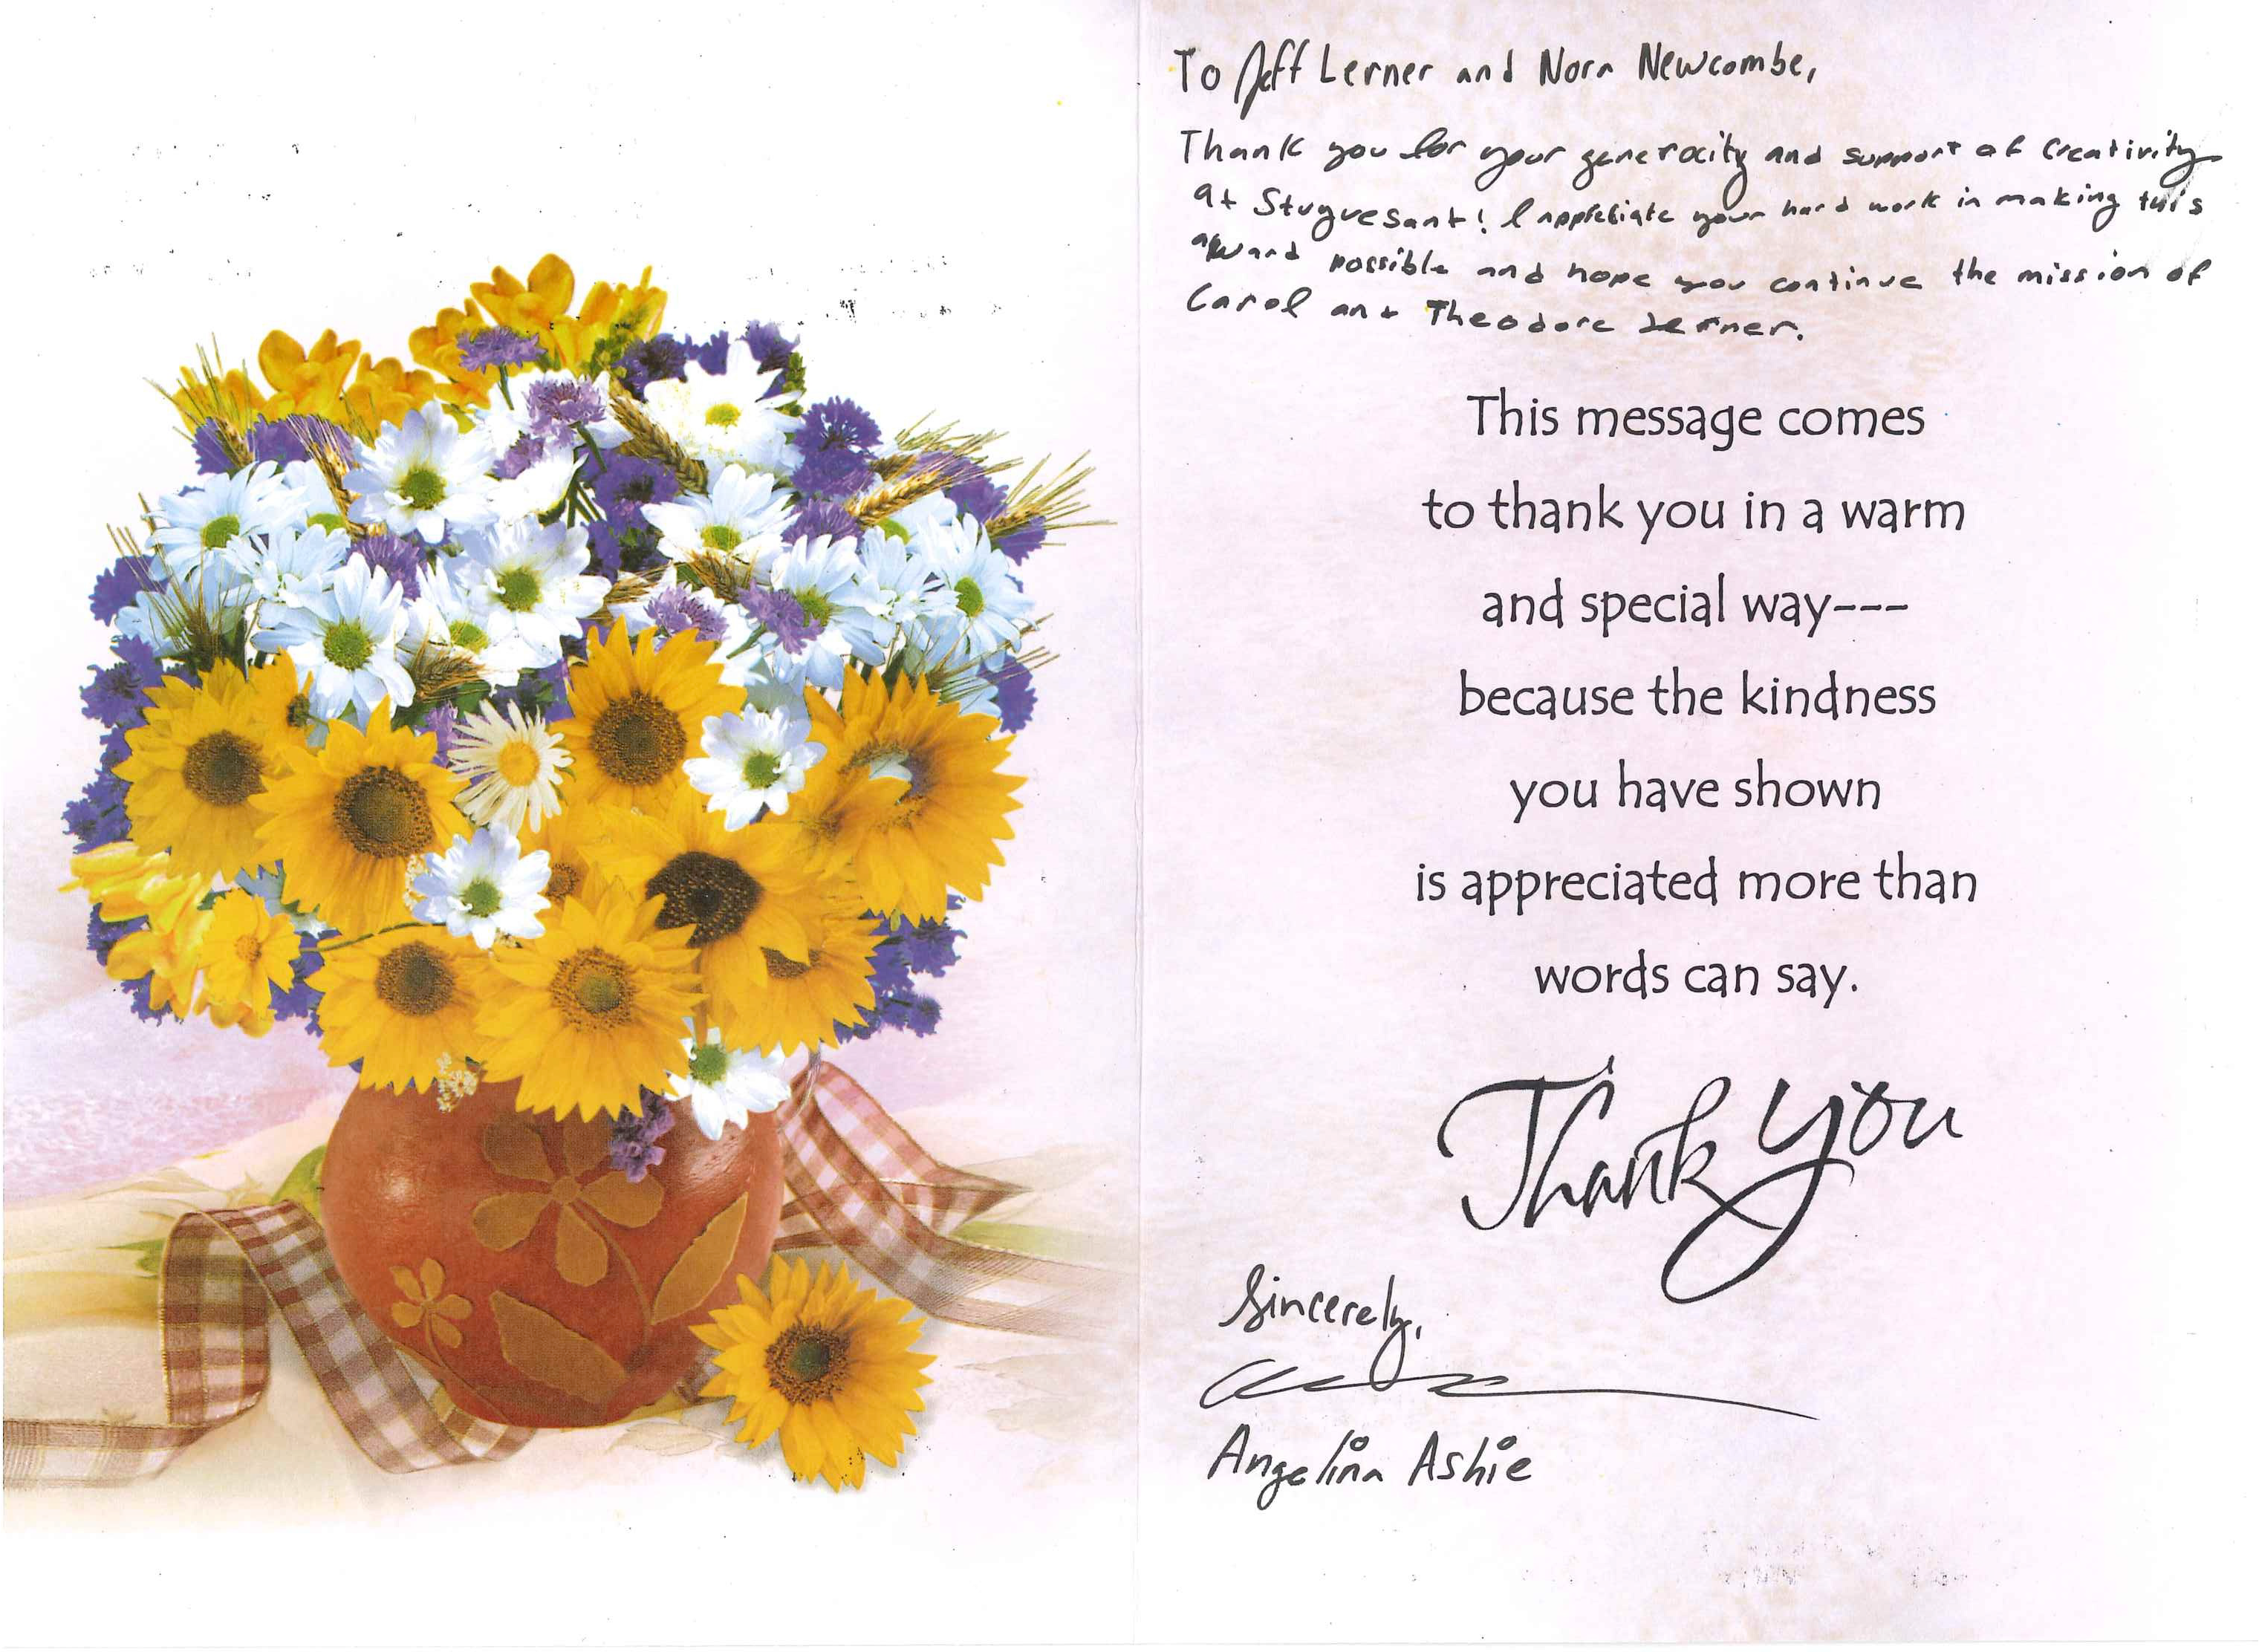 To Jeff Lerner and Nora Newcombe,
Thank you for your generocity and support of creativity
at Stuyvesant! I appretiate your hard work in making this
award possible and hope you continue the mission of
Carol and Theodore Lerner.
This message comes
to thank you in a warm
and special way---
because the kindness
you have shown
is appreciated more than
words can say.
Thank you
Sincerely,
Angelina Ashie